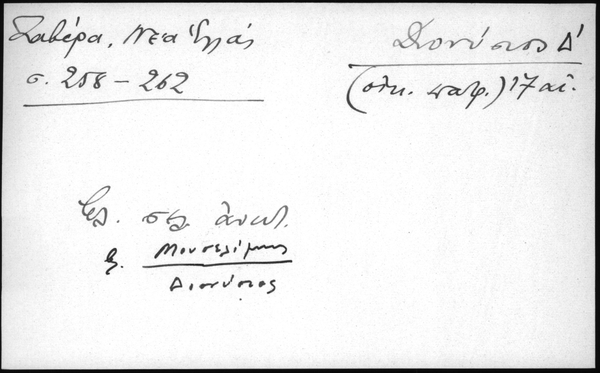 Ζαβίρα, Νέα Ἑλλάς
σ. 258 – 262
Διονύσιος Δ'
(οἰκ. πατρ.) 17 αἰ.
Βλ. σελ. ἀνωτ.
Βλ. Μουσελίμης
Διονύσιος